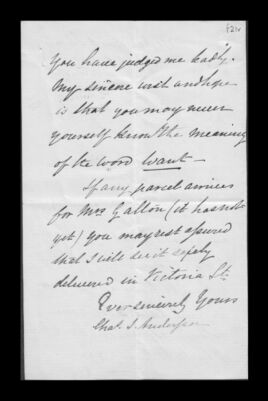 you have judged me badly.
My sincere wish and hope
is that you may never
yourself know the meaning
of the word want –
If any parcel arrives
for Mrs Gallon (it has not
yet) you may rest assured
that I will see it safely
delivered in Victoria St.
Ever sincerely Yours
Chas. S. Anderson